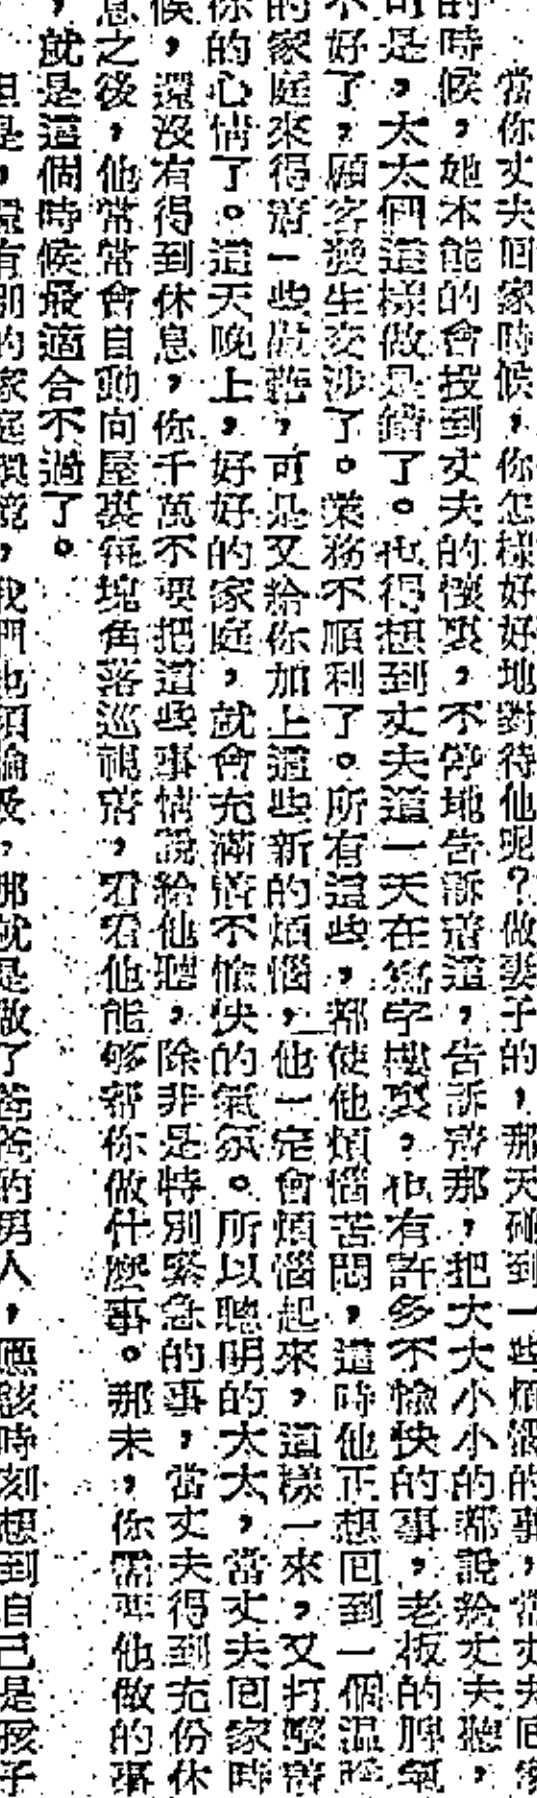 當你丈夫回家時候，你怎樣好好地對待他呢？做妻子的，那天碰到一些煩惱的事，當丈夫回家
的時候，她本能的會投到丈夫的懷裏，不停地告訴着這，告訴着那，把大大小小的都說給丈夫聽，
可是，太太們這樣做是錯了。也得想到丈夫這一天在寫字樓裏，也有許多不愉快的事，老板的脾氣
不好了，顧客發生交涉了。業務不順利了。所有這些，都使他煩惱苦悶，這時他正想回到一個溫
的家庭來得着一些，可是又給你加上這些新的煩惱，他一定會煩惱起來，這樣一來，又打擊着
你的心情了。這天晚上，好好的家庭，就會充滿着不愉快的氣氛。所以聰明的太太，當丈夫回家時
候，還沒有得到休息，你千萬不要把這些事情說給他聽，除非是特別緊急的事，當丈夫得到充份休
息之後，他常常會自動向屋裏每塊角落巡視着，看看他能够替你做什麼事。那末，你需要他做的事
，就是這個時候最適合不過了。
但是，還有別的家庭環境，我們也須論及，那就是做了爸爸的男人，應該時刻想到自己是孩子